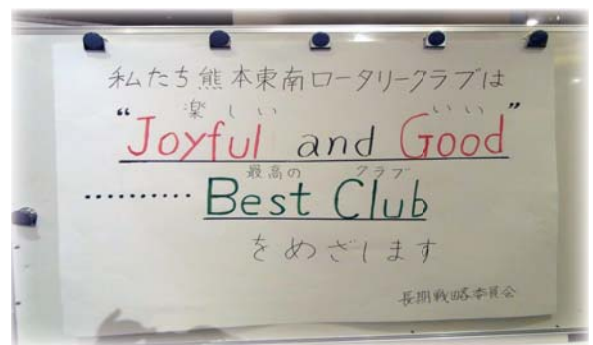 私たち熊本東南ロータリークラブは
楽しい いい
“Joyful and Good”
最高の クラブ
‥‥‥‥‥Best Club
をめざします
長期戦略委員会